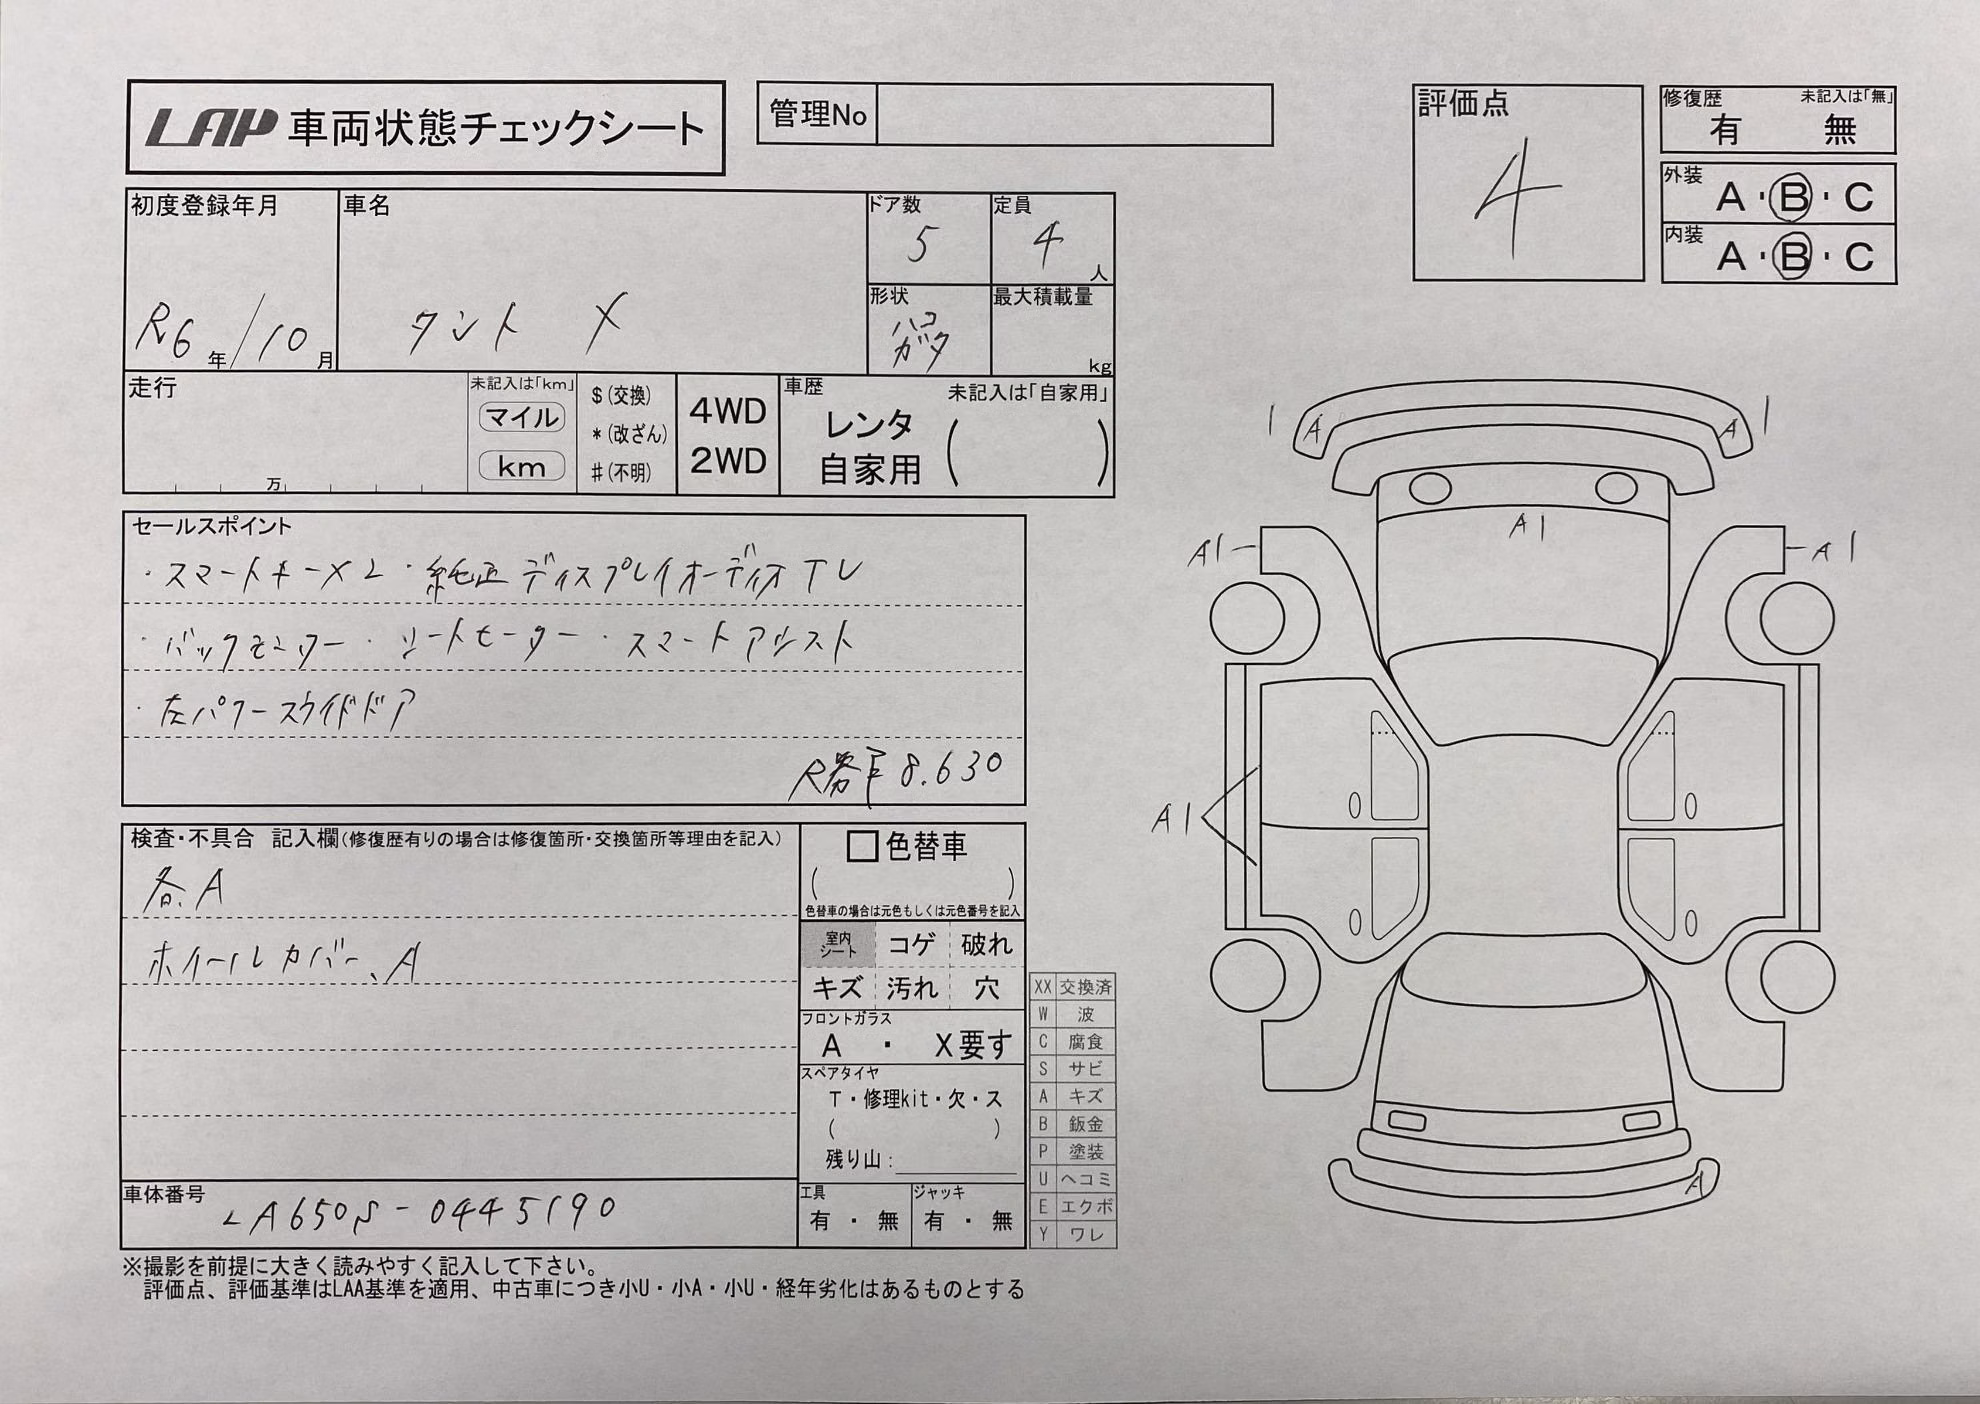 LAP 車両状態チェックシート
管理No
評価点
4
修復歴 未記入は「無」
有 無
外装 A・B・C
内装 A・B・C
初度登録年月
R6年/10月
車名
タント X
ドア数
5
定員
4人
形状
ハコ
ガタ
最大積載量
kg
走行
万
未記入は「km」
マイル
km
$(交換)
*(改ざん)
#(不明)
4WD
2WD
車歴 未記入は「自家用」
レンタ
自家用
( )
セールスポイント
・スマートキーX2・純正ディスプレイオーディオTV
・バックモニター・シートヒーター・スマートアシスト
・左パワースライドドア
R券 8.630
検査・不具合 記入欄(修復歴有りの場合は修復箇所・交換箇所等理由を記入)
各.A
ホイールカバー、A
色替車
( )
色替車の場合は元色もしくは元色番号を記入
室内
シート
コゲ 破れ
キズ 汚れ 穴
フロントガラス
A ・ X要す
スペアタイヤ
T・修理kit・欠・ス
( )
残り山:
工具
有 ・ 無
ジャッキ
有 ・ 無
車体番号
LA650S-0445190
XX 交換済
W 波
C 腐食
S サビ
A キズ
B 鈑金
P 塗装
U ヘコミ
E エクボ
Y ワレ
1 A A 1
A1
A1
A1
A1
A
※撮影を前提に大きく読みやすく記入して下さい。
評価点、評価基準はLAA基準を適用、中古車につき小U・小A・小U・経年劣化はあるものとする